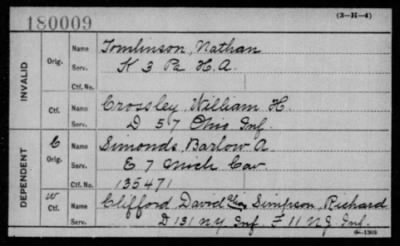 180009
(3-H-4)
INVALID
Orig.
Name Tomlinson, Nathan
Serv. K 3 Pa H. A.
Ctf. No.
Ctf.
Name Crossley, William H.
Serv. D 57 Ohio Inf.
DEPENDENT
C
Orig.
Name Simonds, Barlow A.
Serv. E 7 Mich Cav
Ctf. No. 135471
W
Ctf.
Name Clifford David Simpson, Richard
Serv. D 131 N.Y. Inf. F 11 N.J. Inf.